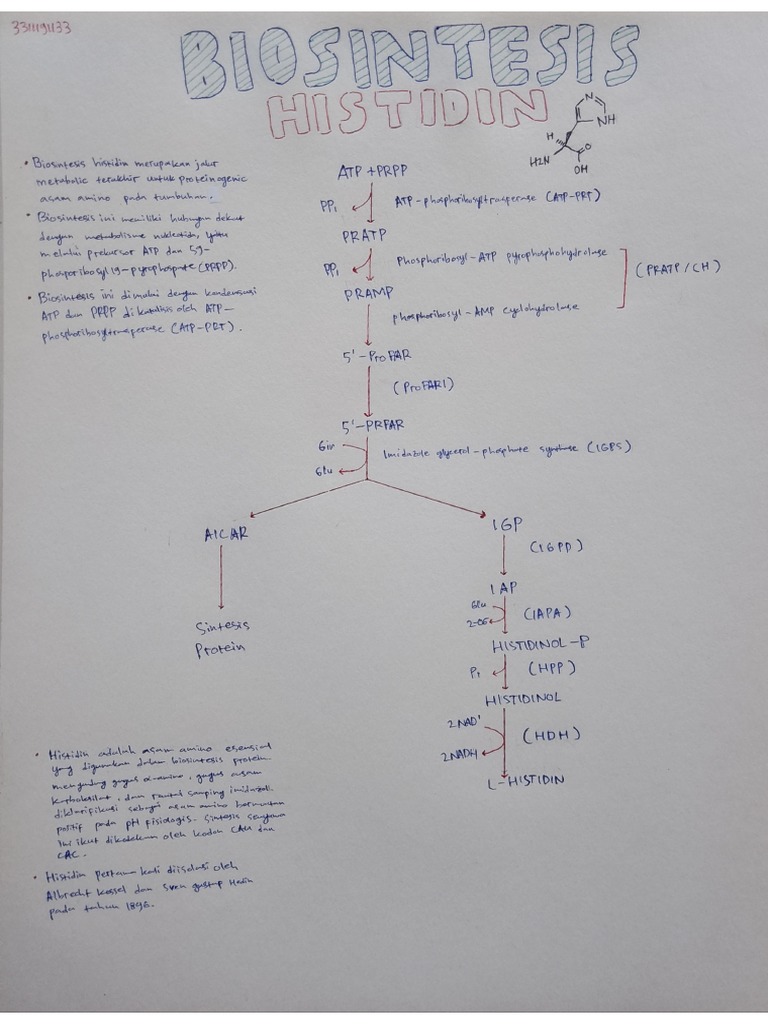 3311191133
BIOSINTESIS
HISTIDIN
N
NH
H
H2N
O
OH
• Biosintesis histidin merupakan jalur
metabolic terakhir untuk proteinogenic
asam amino pada tumbuhan.
• Biosintesis ini memiliki hubungan dekat
dengan metabolisme nukleotida, yaitu
melalui prekursor ATP dan 59-
phosporibosyl 19-pyrophospate (PRPP).
• Biosintesis ini dimulai dengan kondensasi
ATP dan PRPP dikatalisis oleh ATP-
phosphoribosyltrasperase (ATP-PRT).
ATP + PRPP
PPi
ATP-phosphoribosyltrasperase (ATP-PRT)
PRATP
PPi
Phosphoribosyl-ATP pyrophosphohydrolase
(PRATP/CH)
PRAMP
phosphoribosyl-AMP cyclohydrolase
5'-ProFAR
(ProFARI)
5'-PRFAR
Gln
Glu
Imidazole glycerol-phosphate synthase (IGPS)
AICAR
Sintesis
Protein
IGP
(IGPD)
IAP
Glu
2-OG
(IAPA)
HISTIDINOL-P
Pi
(HPP)
HISTIDINOL
2NAD+
2NADH
(HDH)
L-HISTIDIN
• Histidin adalah asam amino esensial
yang digunakan dalam biosintesis protein.
mengandung gugus α-amino, gugus asam
karboksilat, dan rantai samping imidazol.
diklasifikasi sebagai asam amino bermuatan
positif pada pH fisiologis. sintesis senyawa
ini ikut dikodekan oleh kodon CAU dan
CAC.
• Histidin pertama kali diisolasi oleh
Albrecht kossel dan Sven gustaf Hedin
pada tahun 1896.